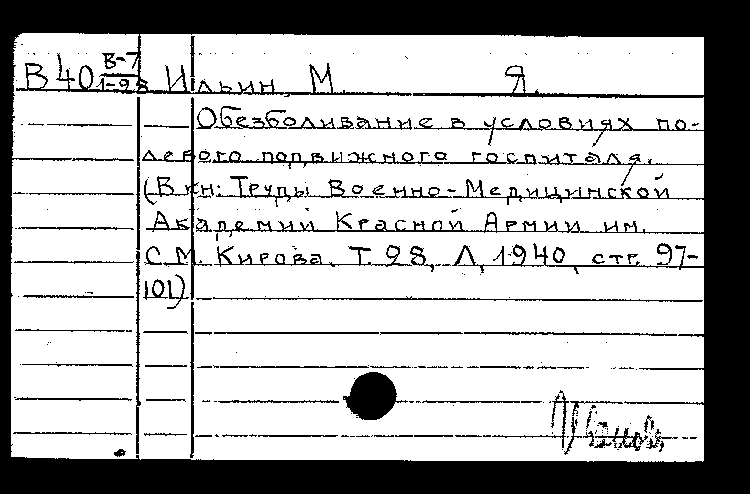 В 40 В-7
1-98 Ильин, М. Я.
Обезболивание в условиях по-
левого подвижного госпиталя.
(В кн: Труды Военно-Медицинской
Академии Красной Армии им.
С.М. Кирова. Т. 98, Л, 1940, стр. 97-
101)